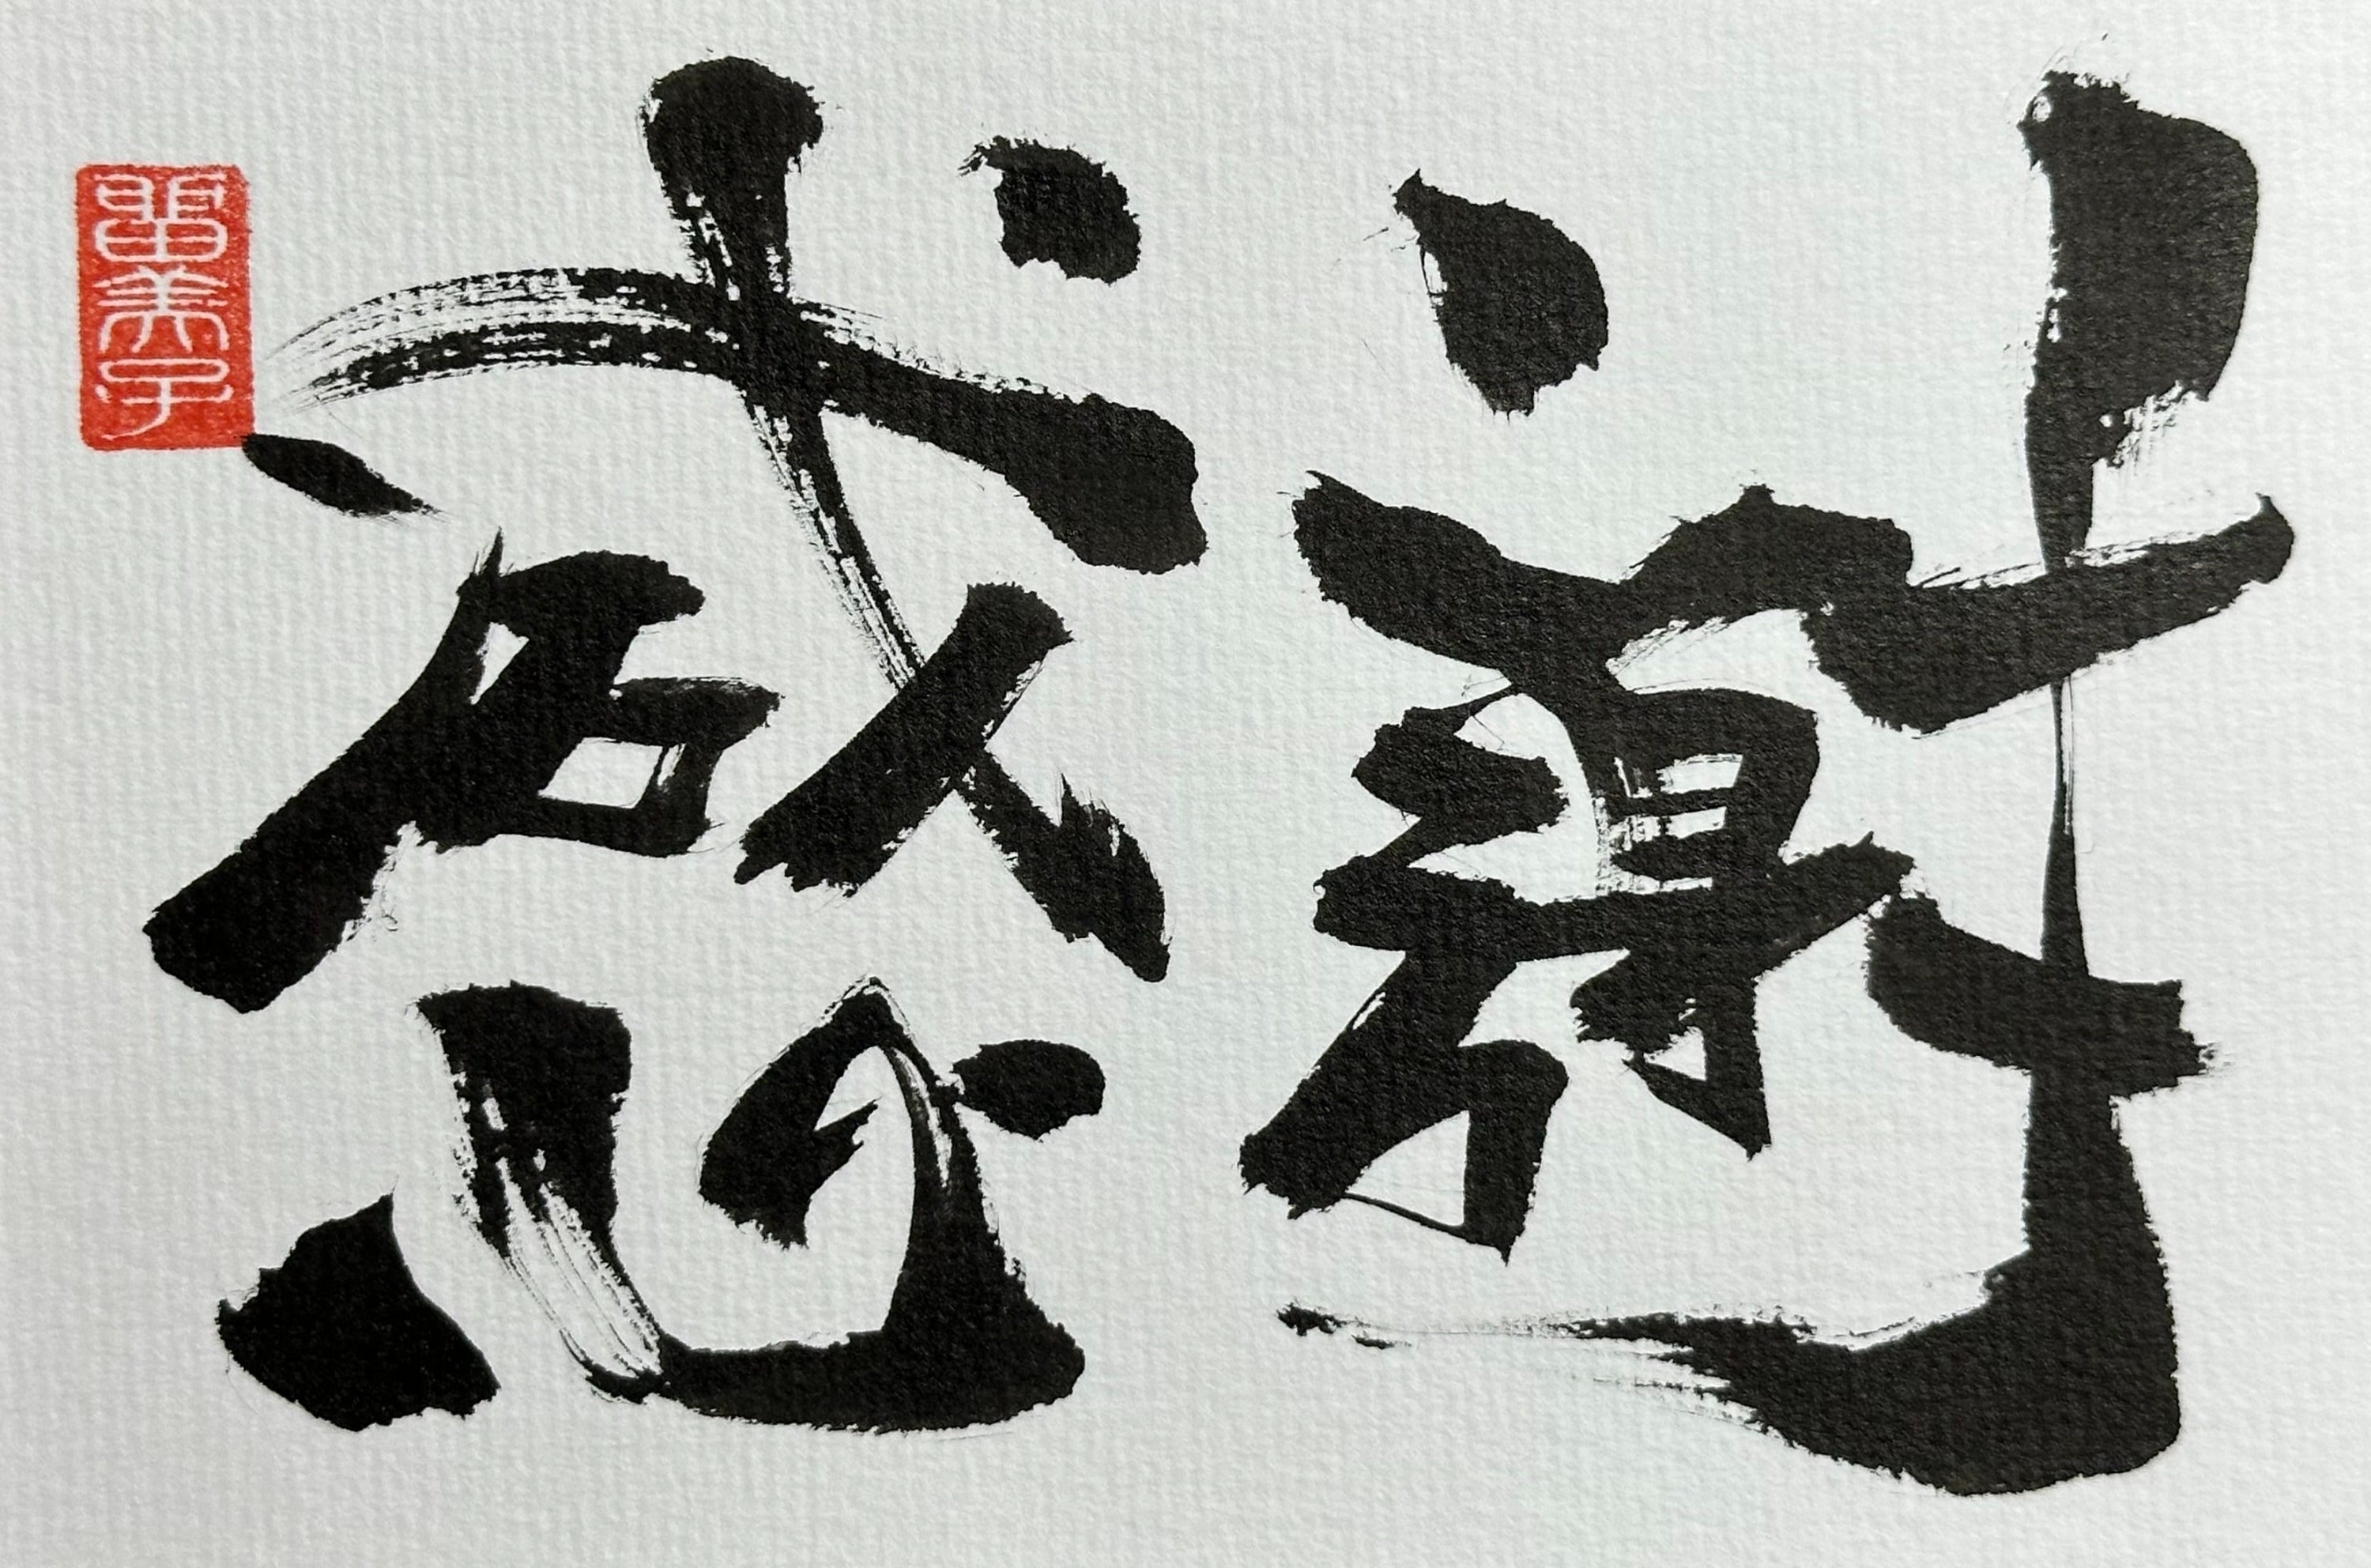 感謝
留美子